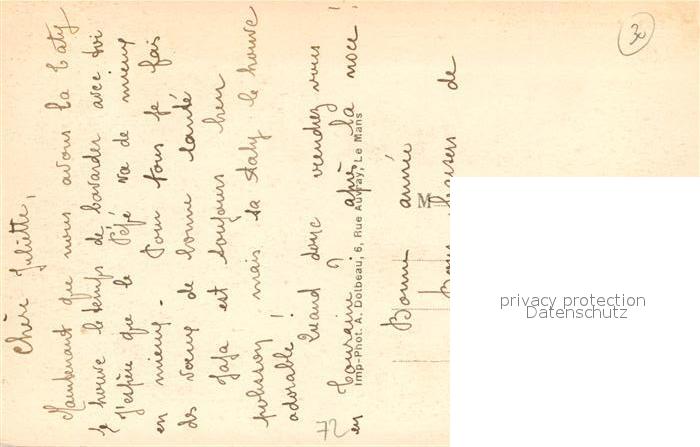 Chère Juliette,
Maintenant que nous avons la Caty
je trouve le temps de bavarder avec toi
J'espère que le Pépé va de mieux
en mieux - Pour tous je fais
des voeux de bonne santé
est toujours bien
polisson mais sa Caty le trouve
adorable !
Quand donc viendrez vous
en Touraine ? après la noce !
Imp-Phot. A. Dolbeau, 6, Rue Auvray, Le Mans
Bonne année
M
Bons baisers de
30
72
privacy protection
Datenschutz